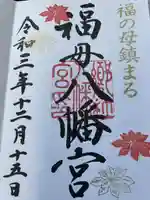 福の母鎮まる
福母八幡宮
令和三年十二月十五日